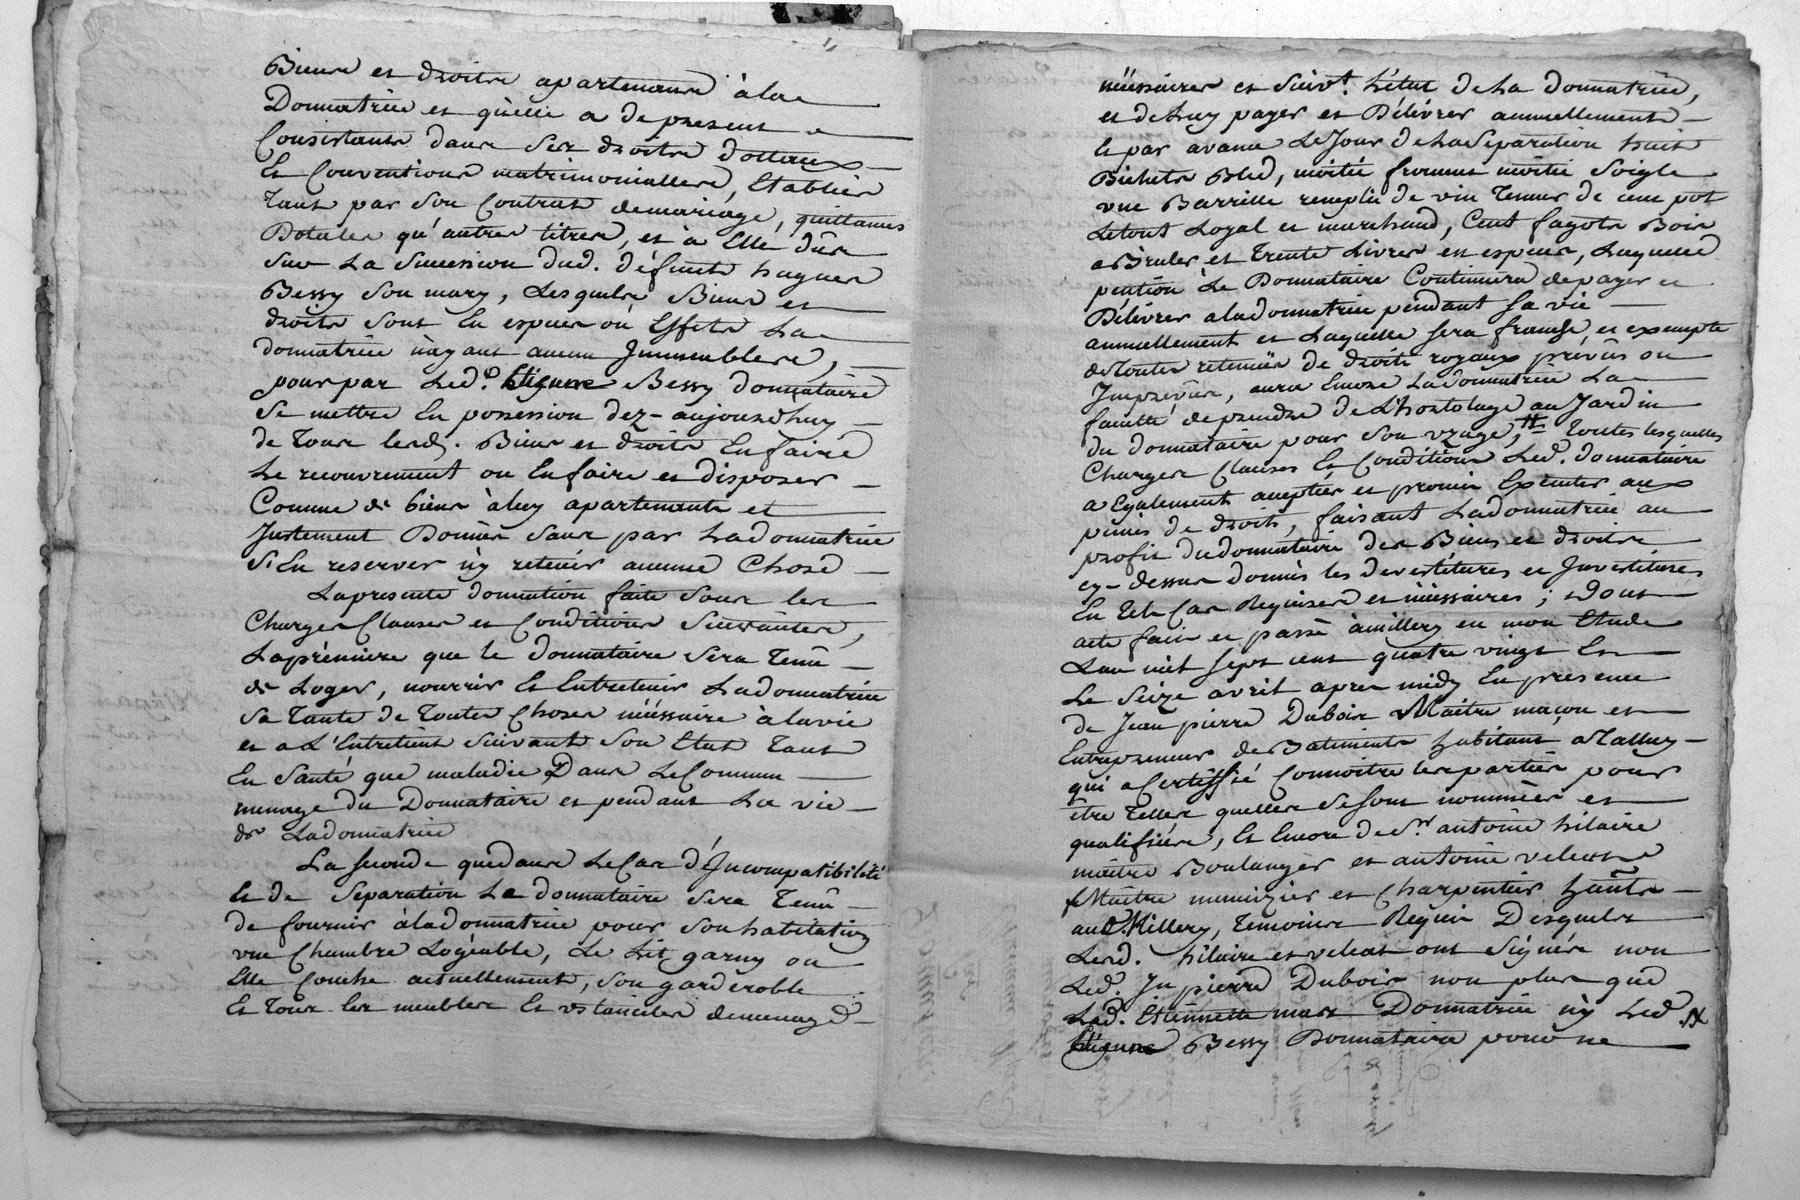 Biens et droits apartenans à la
Donnatrice et qu'elle a de present
Consistants dans ses droits dottaux
Et Conventions matrimonialles, Etablies
Tant par son Contrat de mariage, quittances
Dotales qu'autres titres, et à Elle dûs
sur La Succession dud. défunt hugues
Bessy son mary, Lesquels Biens et
droits sont En espèces où Effets La
donnatrice n'ayant aucun Jmmeubles,
pour par Led. Etienne Bessy donnataire
se mettre En possession dez-aujourdhuy
de Tous lesd. Biens et droits En faire
Le recouvrement ou En faire et disposer
Comme de biens à luy apartenants et
Justement Donnés sans par La donnatrice
s'En reserver n'y retenir aucune Chose
La presente donnation faite sous les
Charges Clauses et Conditions Suivantes,
La prémiere que le donnataire sera Tenû
de Loger, nourrir Et Entretenir La donnatrice
sa Tante de Toutes Choses néessaire à la vie
et a L'Entretient suivant son Etat Tant
En santé que maladie Dans Le Commun
menage du Donnataire et pendant La vie
de La donnatrice
La seconde que dans Le Cas d'Jncompatibilité
Et de Séparation Le donnataire sera Tenû
de fournir à la donnatrice pour son habitation
une Chambre Logéable, Le Lit garny ou
Elle Couche actuellement, son garderoble
Et Tous les meubles Et ustanciles de menage
néessaires et suivt. L'état de La donnatrice,
et de Luy payer et Délivrer annuellement
et par avance Le Jour de La Séparation huit
Bichets Bled, moitié froment moitié soigle
une Barrille remplie de vin Tenus de cent pot
Le tout Loyal et marchand, Cent fagots Bois
a Bruler et Trente Livres en espèces, Laquelle
pention Le Donnataire Continuera de payer et
Délivrer a la donnatrice pendant sa vie
annuellement et Laquelle sera franche et exempte
de Toutes retenües de droits royaux prévûs ou
Jmprévûs, aura Encore La donnatrice La
faculté de prendre de L'hortolage au Jardin
du donnataire pour son uzage, # Toutes lesquelles
Charges Clauses Et Conditions Led. donnataire
a Egalement acceptées et promis Exécuter aux
peines de droits, faisant La donnatrice au
profit du donnataire des Biens et droits
cy-dessus donnés les devestitures et Jnvestitures
En Tels Cas Requises et néessaires; Dont
acte fait et passé à millery en mon Etude
L'an mil sept cent quatre vingt Et
Le seize avril apres midy En présence
de Jean pierre Dubois Maitre maçon et
Entrepreneur de Batiments habitant a Talluy
qui a Certiffié Connoitre les parties pour
être Telles quelles se sont nommées et
qualifiées, Et Encore de Sr. antoine hilaire
maitre Boulanger et antoine veleat
Maitre menuizier et Charpentier habts
aud. Millery, Temoins Requis Desquels
Lesd. hilaire et veleat ont signés non
Led. Jn pierre Dubois non plus que
Lad. Etiennette mas Donnatrice n'y Led.
Etienne Bessy Donnataire pour ne